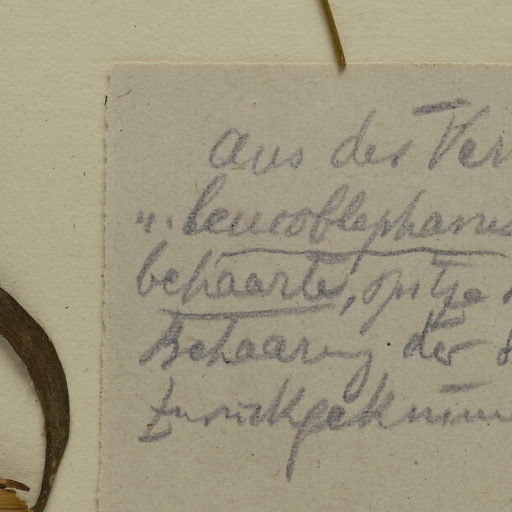 aus der Ver
u. leucoblepharus
behaarte, spitze
Behaarung der
zurückgekrümm